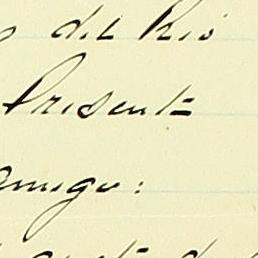 del Rio
Presente
amigo: